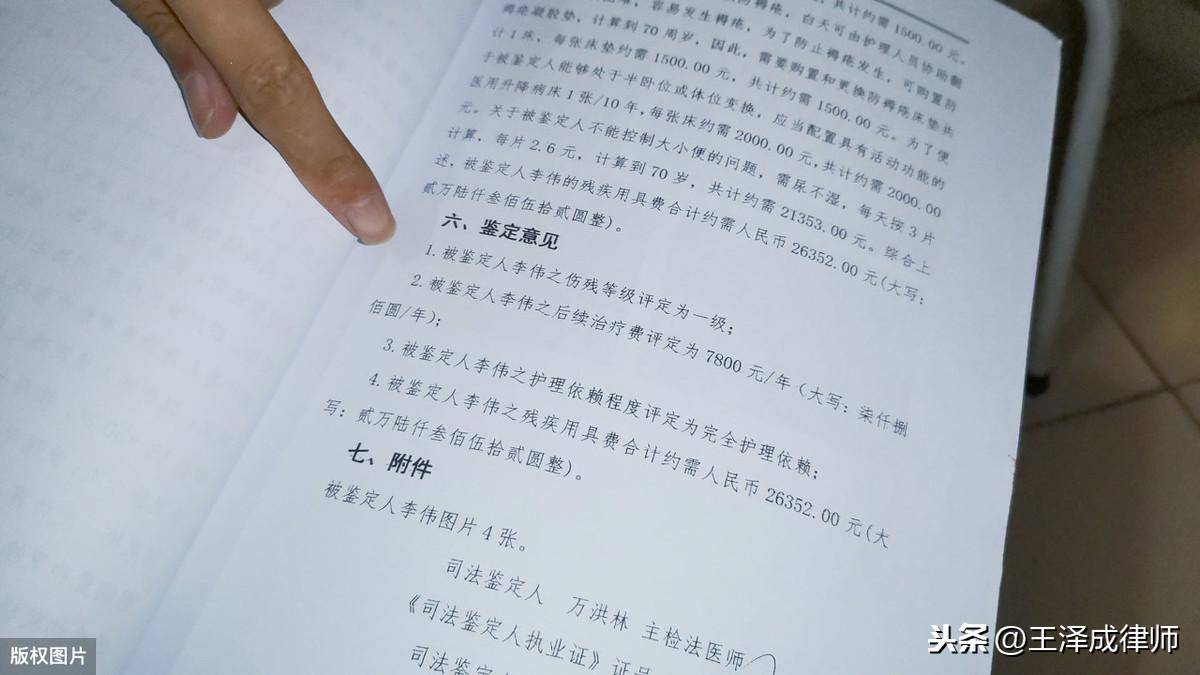 共计约需1500.00元。
容易发生褥疮,白天可由护理人员协助翻
褥疮凝胶垫,计算到70周岁,因此,需要购置和更换防褥疮床垫共
计1床,每张床垫约需1500.00元,共计约需1500.00元。为了便
于被鉴定人能够处于半卧位或体位变换,应当配置具有活动功能的
医用升降病床1张/10年,每张床约需2000.00元,共计约需2000.00
元。关于被鉴定人不能控制大小便的问题,需尿不湿,每天按3片
计算,每片2.6元,计算到70岁,共计约需21353.00元。综合上
述,被鉴定人李伟的残疾用具费合计约需人民币26352.00元(大写:
贰万陆仟叁佰伍拾贰圆整)。
六、鉴定意见
1.被鉴定人李伟之伤残等级评定为一级;
2.被鉴定人李伟之后续治疗费评定为7800元/年(大写:柒仟捌
佰圆/年);
3.被鉴定人李伟之护理依赖程度评定为完全护理依赖;
4.被鉴定人李伟之残疾用具费合计约需人民币26352.00元(大
写:贰万陆仟叁佰伍拾贰圆整)。
七、附件
被鉴定人李伟图片4张。
司法鉴定人 万洪林 主检法医师
《司法鉴定人执业证》证号
司法鉴定
版权图片
头条@王泽成律师